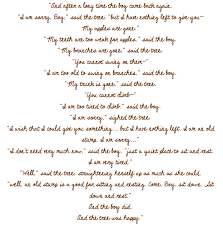 "And after a long time the boy came back again.
"I am sorry, Boy," said the tree, "but I have nothing left to give you—
My apples are gone."
"My teeth are too weak for apples," said the boy.
"My branches are gone," said the tree.
"You cannot swing on them—"
"I am too old to swing on branches," said the boy.
"My trunk is gone," said the tree.
"You cannot climb—"
"I am too tired to climb," said the boy.
"I am sorry," sighed the tree.
"I wish that I could give you something... but I have nothing left. I am an old
stump. I am sorry..."
"I don't need very much now," said the boy, "just a quiet place to sit and rest.
I am very tired."
"Well," said the tree, straightening herself up as much as she could,
"well, an old stump is a good for sitting and resting. Come, Boy, sit down. Sit
down and rest."
And the boy did.
And the tree was happy."